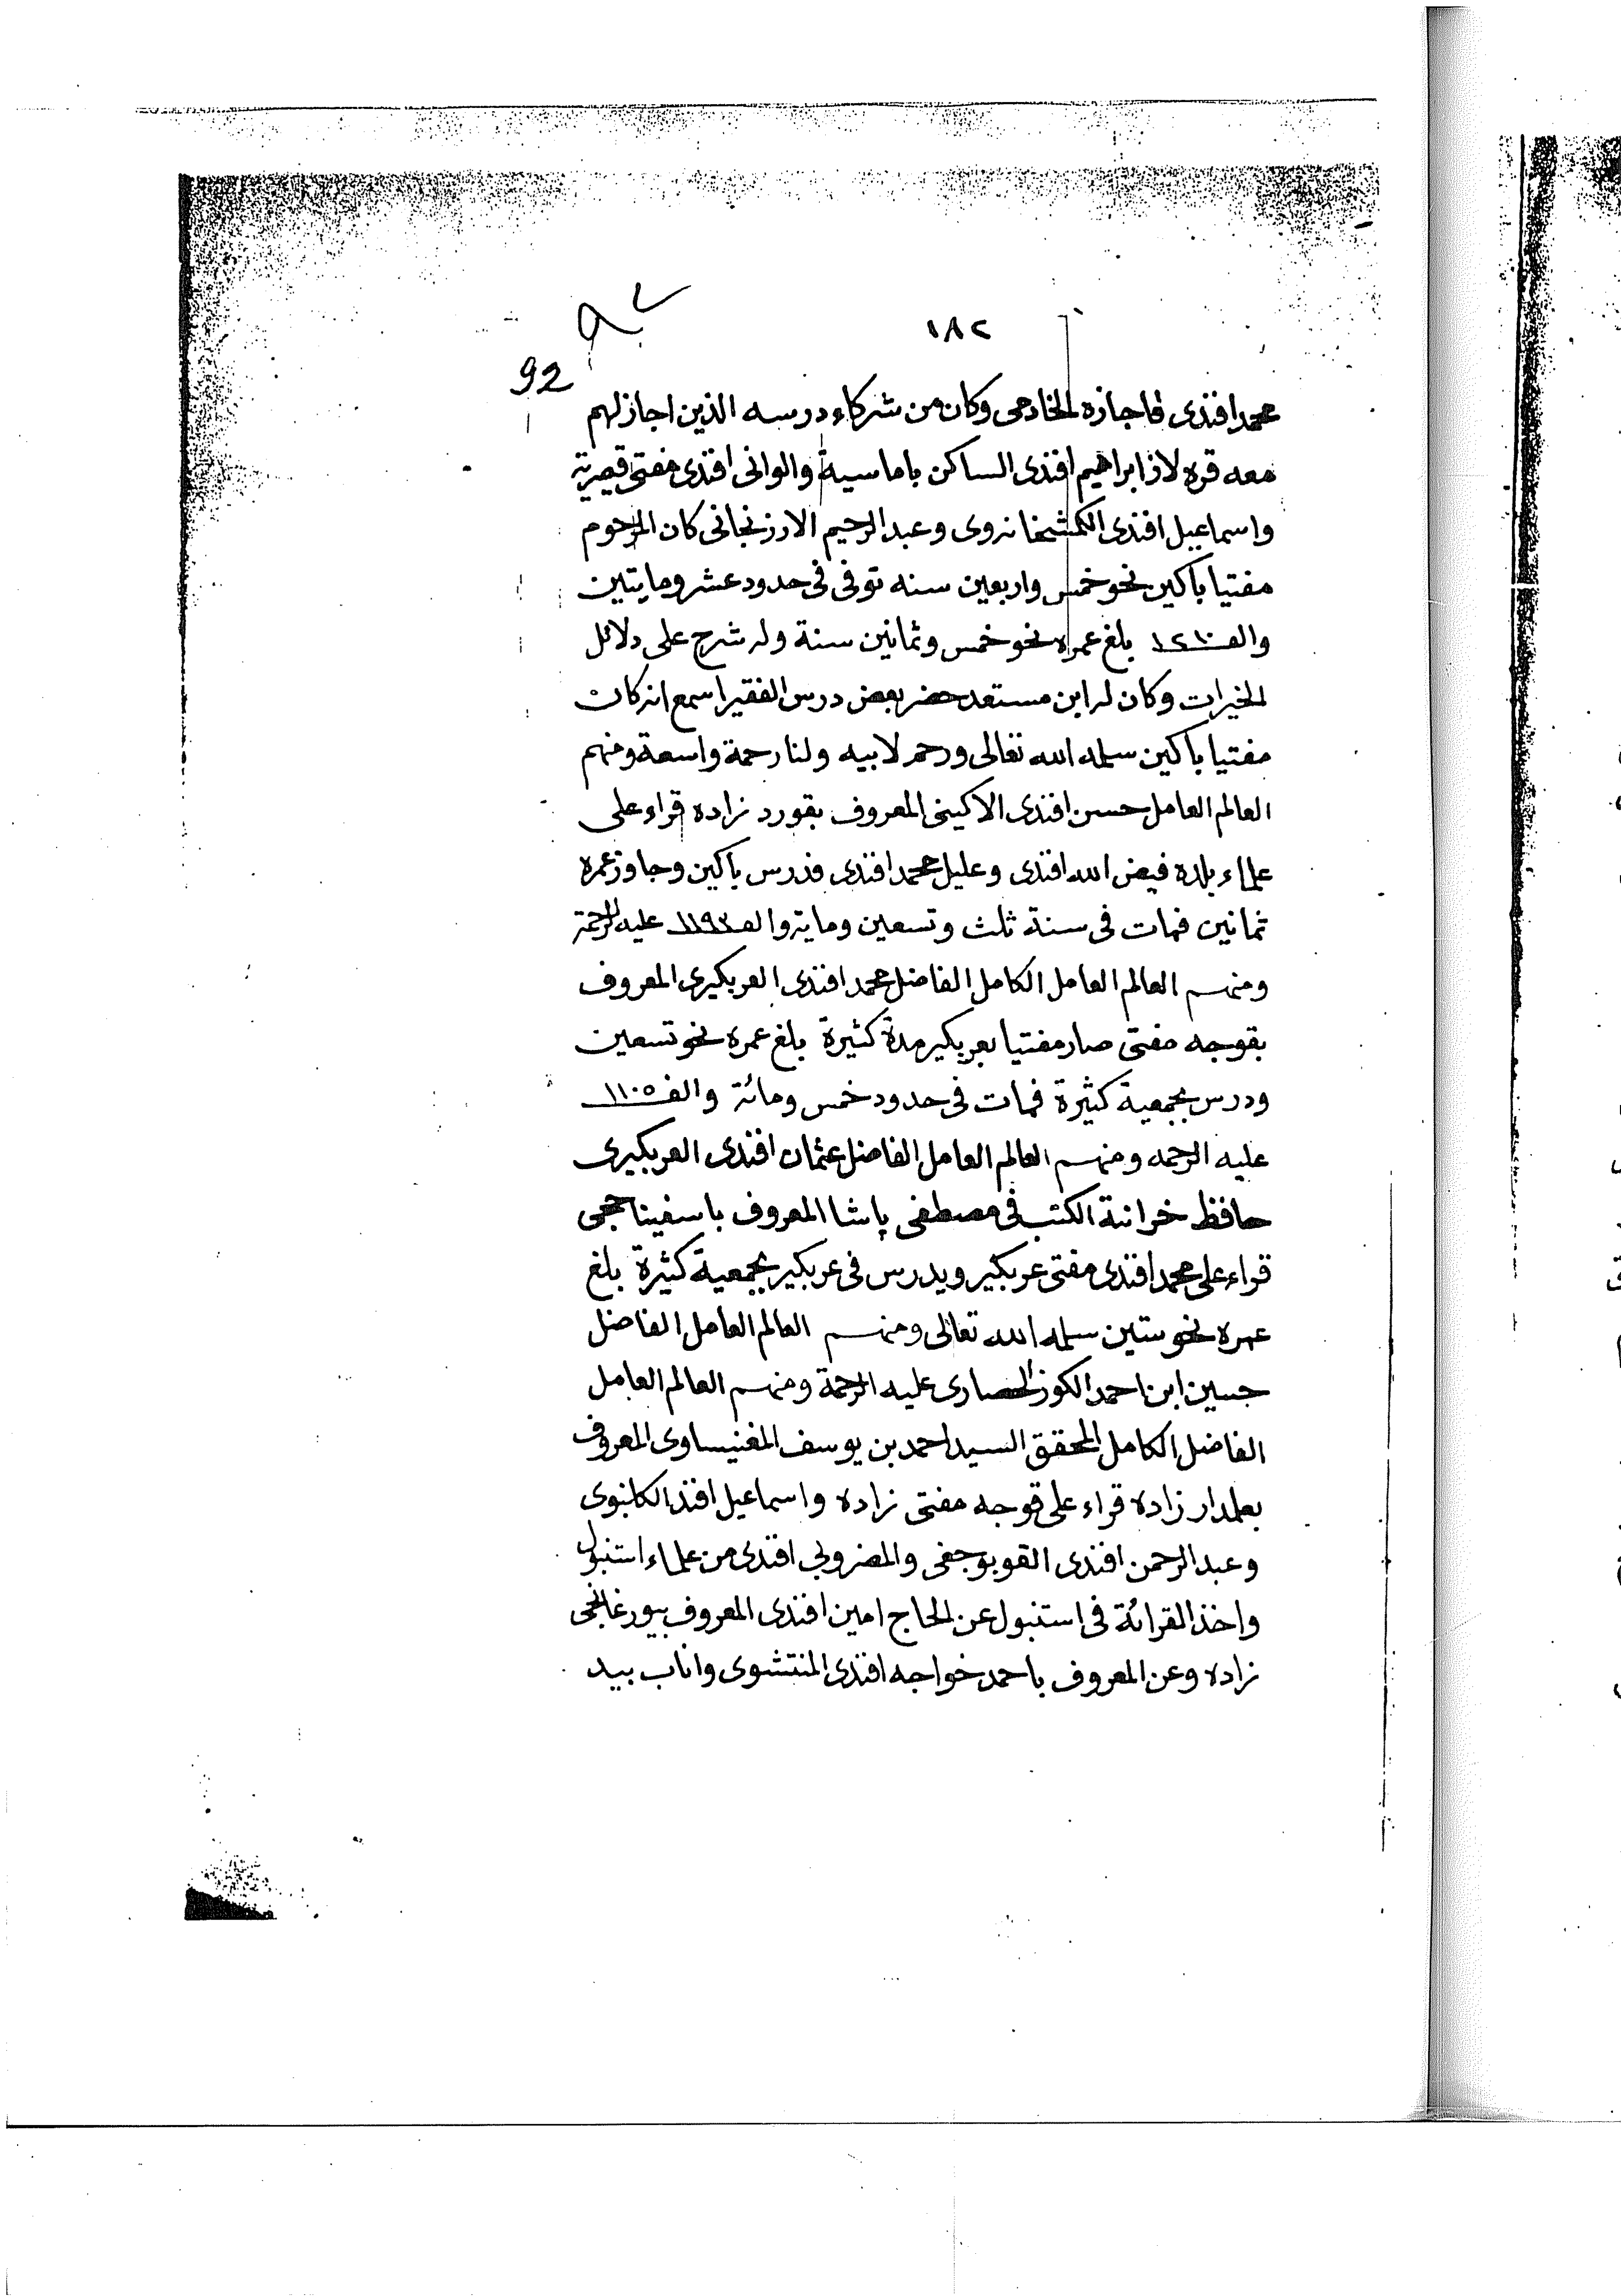 ١٨٢
٩٢
92
محمد افندى فاجازه الخادمى وكان من شركاء درسه الذين اجاز لهم
معه قره لاز ابراهيم افندى الساكن باماسية والوانى افندى مفتى قيصرية
واسماعيل افندى الكمشخانروى وعبد الرحيم الارزنجانى كان المرحوم
مفتيا باكين نحو خمس واربعين سنه توفى فى حدود عشر ومايتين
والف ١٢١٠ بلغ عمره نحو خمس وثمانين سنة وله شرح على دلائل
الخيرات وكان له ابن مستعد حضر بعض درس الفقير اسمع انه كان
مفتيا باكين سلمه الله تعالى ورحم لابيه ولنا رحمة واسعة ومنهم
العالم العامل حسن افندى الاكينى المعروف بقورد زاده قراء على
علماء بلده فيض الله افندى وعليل محمد افندى فدرس باكين وجاوز عمره
ثمانين فمات فى سنة ثلث وتسعين وماية والف ١١٩٣ عليه الرحمة
ومنهم العالم العامل الكامل الفاضل محمد افندى العربكيرى المعروف
بقوجه مفتى صار مفتيا بعربكير مدة كثيرة بلغ عمره نحو تسعين
ودرس بجمعية كثيرة فمات فى حدود خمس ومائة والف ١١٠٥
عليه الرحمه ومنهم العالم العامل الفاضل عثمان افندى العربكيرى
حافظ خزانة الكتب فى مصطفى پاشا المعروف باسفيناحجى
قراء على محمد افندى مفتى عربكير ويدرس فى عربكير بجمعية كثيرة بلغ
عمره نحو ستين سلمه الله تعالى ومنهم العالم العامل الفاضل
حسين ابن احمد الكوز الحصارى عليه الرحمة ومنهم العالم العامل
الفاضل الكامل المحقق السيد احمد بن يوسف المغنيساوى المعروف
بعلمدار زاده قراء على قوجه مفتى زاده واسماعيل افند الكلنبوى
وعبد الرحمن افندى القوبوجغى والمضروبى افندى من علماء استنبول
واخذ القرائة فى استنبول عن الحاج امين افندى المعروف بيورغانجى
زاده وعن المعروف باحمد خواجه افندى المنتشوى واناب بيد